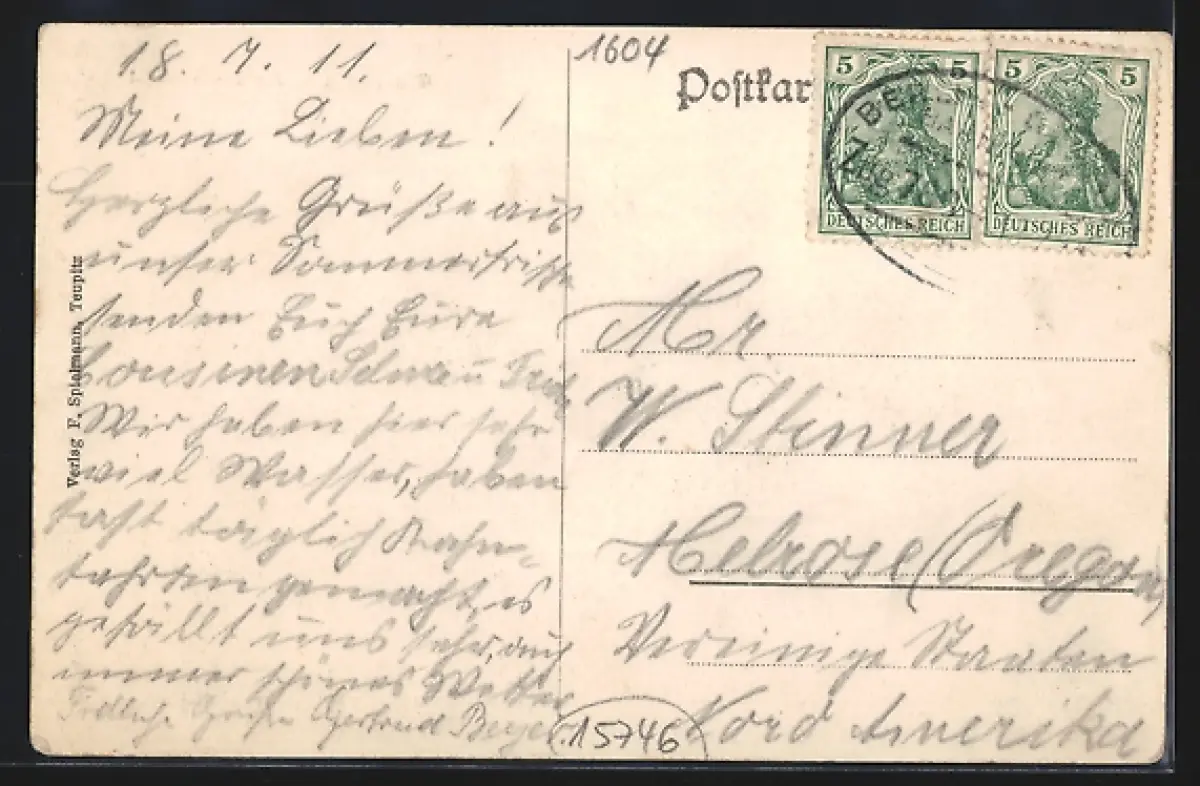 18. 7. 11.
Meine Lieben!
Herzliche Grüße aus
unser Sommerfrische
senden Euch Eure
Cousinen Selma u
Wir haben hier sehr
viel Wasser, haben
fast täglich Kahn-
fahrten gemacht, es
gefällt uns sehr, auch
immer schönes Wetter
Grüße Gertrud
Verlag F. Spielmann, Teupitz
1604
Postkar
5 5
DEUTSCHES REICH
5 5
DEUTSCHES REICH
Mr.
W. Stinner
Melrose (Oregon)
Vereinige Staaten
Nord Amerika
15746